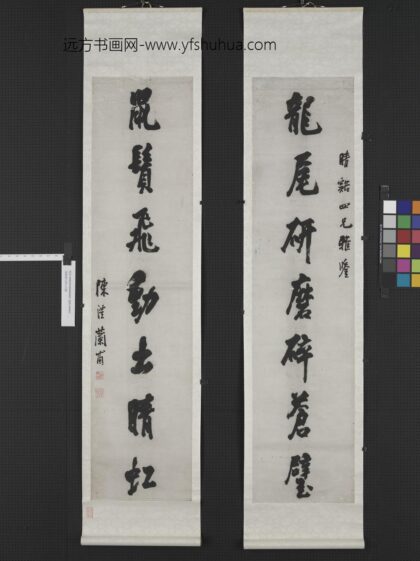 远方书画网-www.yfshuhua.com
晴谿四兄雅鑒
龍尾研磨碎蒼璧
鼠鬚飛動出晴虹
陳澧蘭甫